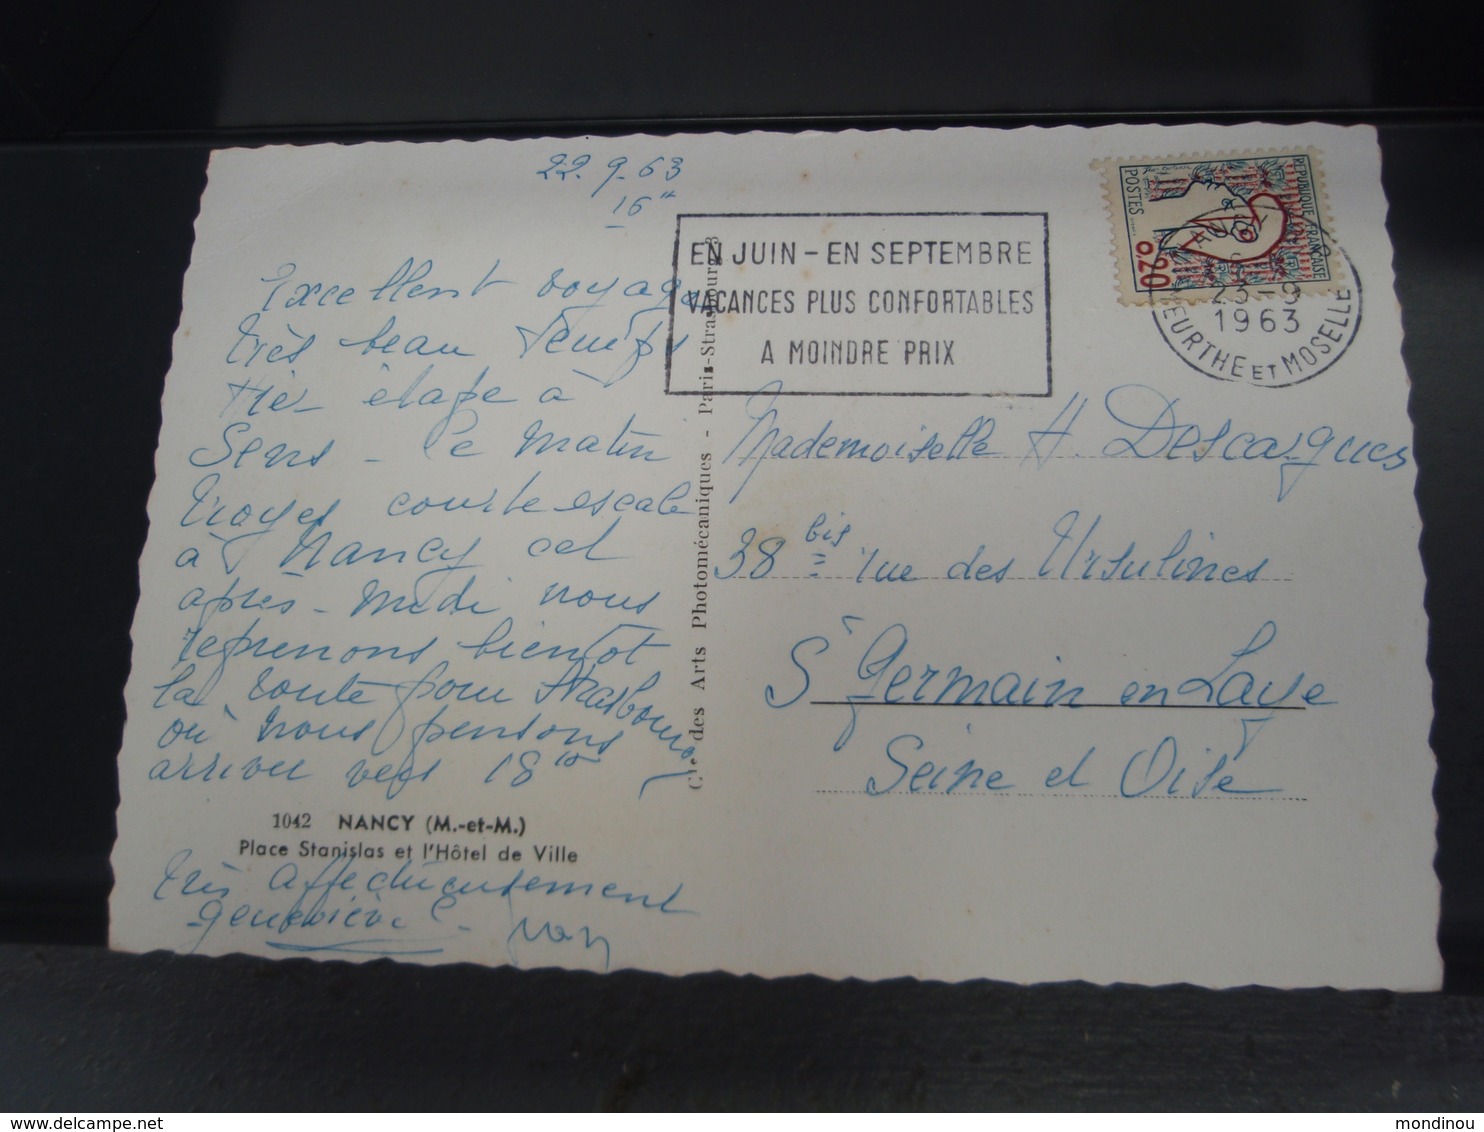 22.9.63
16 H
Excellent voyage
très beau temps
Hier étape à
Sens - ce matin
Troyes courte escale
à Nancy cet
après-midi nous
reprenons bientôt
la route pour Strasbourg
où nous pensons
arriver vers 18 H
1042 NANCY (M.-et-M.)
Place Stanislas et l'Hôtel de Ville
très affectueusement
Geneviève
Cie des Arts Photomécaniques - Paris-Strasbourg
EN JUIN - EN SEPTEMBRE
VACANCES PLUS CONFORTABLES
A MOINDRE PRIX
REPUBLIQUE FRANCAISE
POSTES
0,20
23-9
1963
MEURTHE ET MOSELLE
Mademoiselle H. Descargues
38 bis rue des Ursulines
St Germain en Laye
Seine et Oise
mondinou